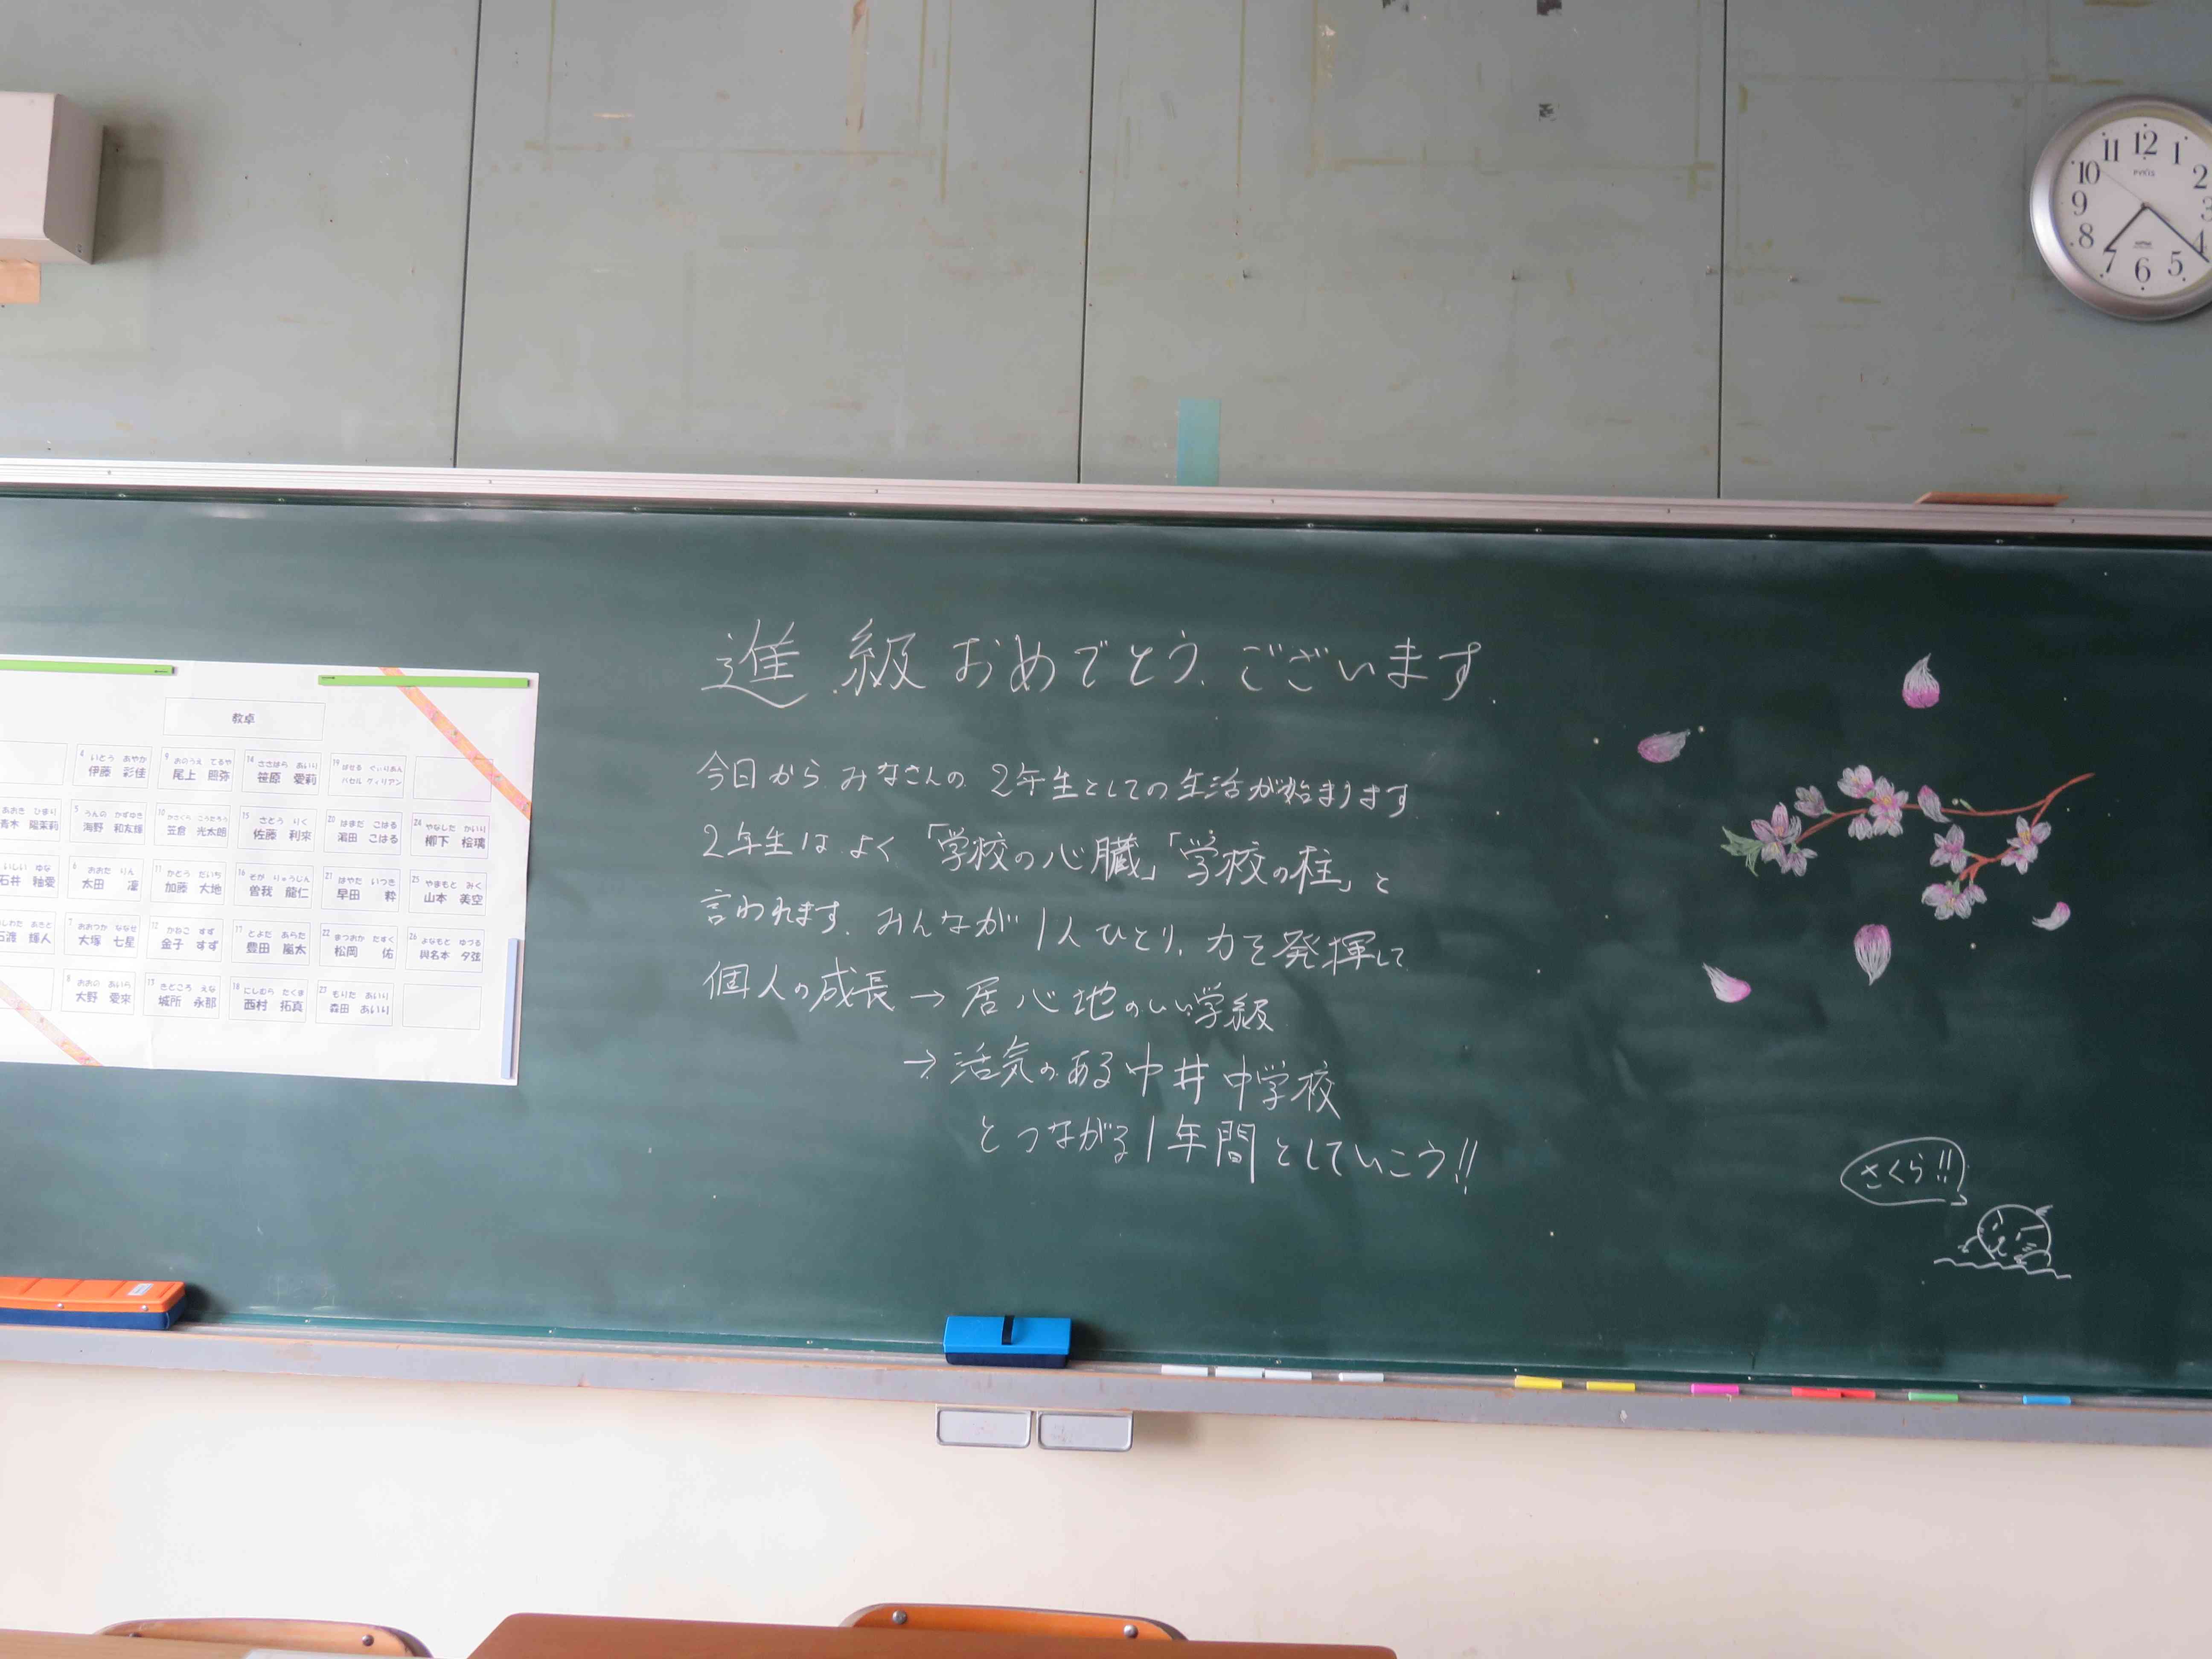 12
11
1
10
2
PYXIS
9
3
8
4
7
6
5
進級おめでとうございます.
今日からみなさんの2年生としての生活が始まります
2年生はよく「学校の心臓」「学校の柱」と
言われます. みんなが1人ひとり, 力を発揮して
個人の成長→居心地のいい学級
→活気のある中井中学校
とつながる1年間としていこう!!
さくら!!
教卓
4 いとう あやか
伊藤 彩佳
9 おのうえ てるや
尾上 照弥
14 ささはら あいり
笹原 愛莉
19 はせる ぐぃりあん
ハセル グィリアン
あおき ひまり
青木 陽茉莉
5 うんの かずゆき
海野 和友輝
10 かさくら こうたろう
笠倉 光太朗
15 さとう りく
佐藤 利來
20 はまだ こはる
濵田 こはる
24 やなした かいり
栁下 桧璃
いしい ゆな
石井 釉愛
6 おおた りん
太田 凜
11 かとう だいち
加藤 大地
16 そが りゅうじん
曽我 龍仁
21 はやた いつき
早田
25 やまもと みく
山本 美空
しわた あきと
石渡 輝人
7 おおつか ななせ
大塚 七星
12 かねこ すず
金子 すず
17 とよだ あらた
豊田 嵐太
22 まつおか たすく
松岡 佑
26 よなもと ゆづる
與名本 夕弦
8 おおの あいら
大野 愛來
13 きどころ えな
城所 永那
18 にしむら たくま
西村 拓真
23 もりた あいり
森田 あいり